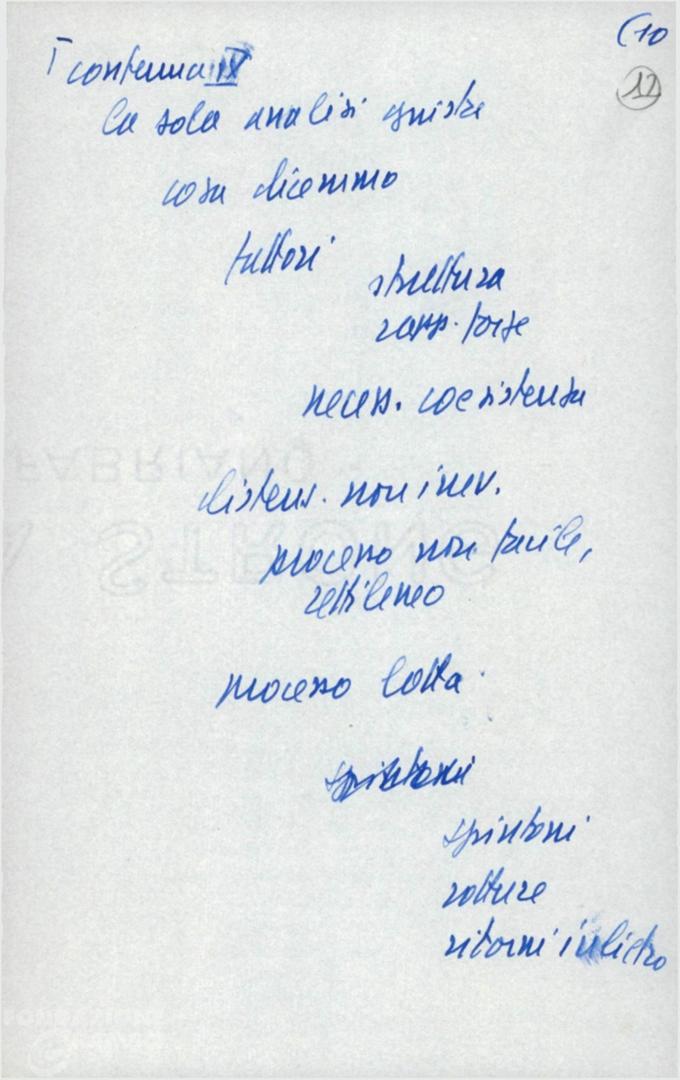 (10
12
conferma IX
la sola analisi giusta
cosa dicemmo
fattori
struttura
rapp. forze
necess. coesistenza
distens. non inev.
processo non facile,
rettilineo
processo lotta
spintoni
spintoni
rotture
ritorni indietro
FABRIANO
STRONG